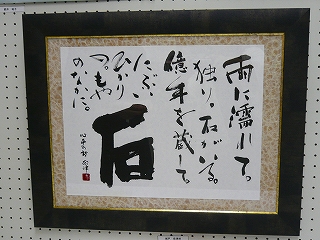 雨に濡れて。
独り。石がいる。
億年を蔵して。
にぶいひかりの。もやのなかに。
石